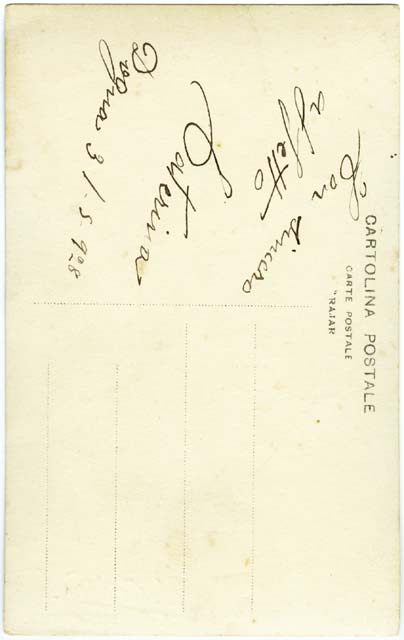 CARTOLINA POSTALE
CARTE POSTALE
"RAJAR
Con sincero
affetto
Caterina
Dogna 31-5-928